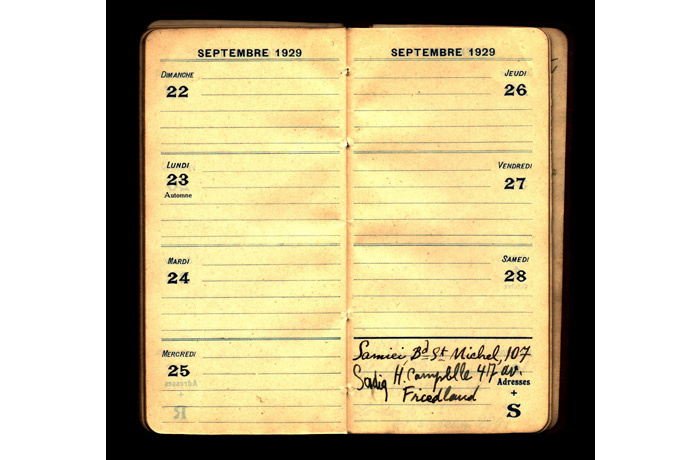 SEPTEMBRE 1929
DIMANCHE
22
LUNDI
23
Automne
MARDI
24
MERCREDI
25
SEPTEMBRE 1929
JEUDI
26
VENDREDI
27
SAMEDI
28
Samiei, Bd St Michel, 107
Sadig H. Campblle 47 av.
Friedland
Adresses
+
S